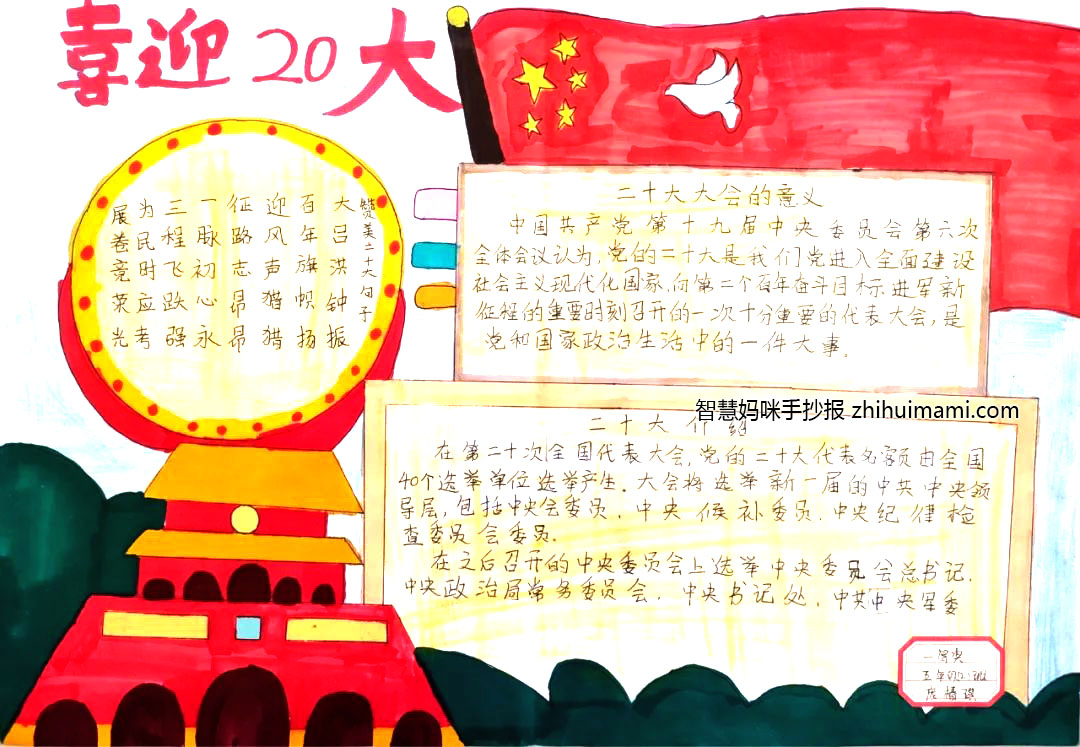 喜迎20大
赞美二十大句子
大吕洪钟振
百年旗帜扬
迎风声猎猎
征路志昂昂
一脉初心永
三程飞跌强
为民时应考
展卷竞荣光
二十大大会的意义
中国共产党第十九届中央委员会第六次
全体会议认为,党的二十大是我们党进入全面建设
社会主义现代化国家,向第二个百年奋斗目标进军新
征程的重要时刻召开的一次十分重要的代表大会,是
党和国家政治生活中的一件大事。
智慧妈咪手抄报 zhihuimami.com
二十大介绍
在第二十次全国代表大会,党的二十大代表名额员由全国
40个选举单位选举产生。大会将选举新一届的中共中央领
导层,包括中央会委员,中央候补委员.中央纪律检
查委员会委员.
在之后召开的中央委员会上选举中央委员会总书记.
中央政治局常务委员会,中央书记处,中共中央军委